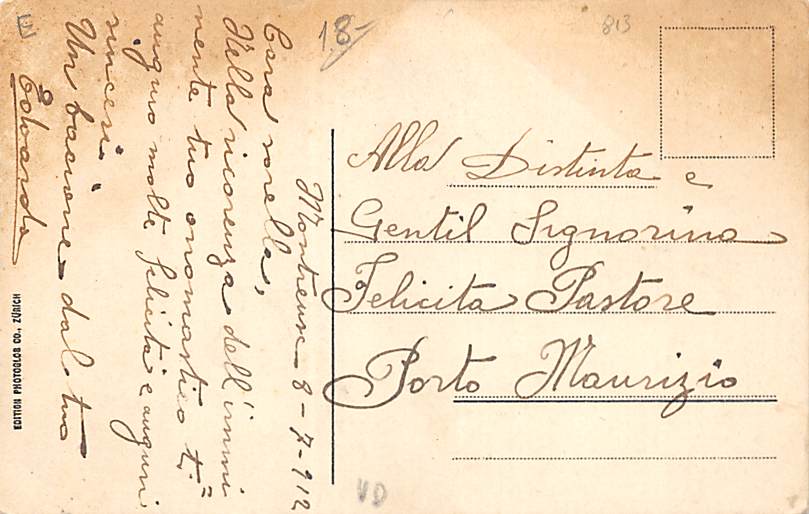 Montreux 8-7-912
Cara sorella,
Nella ricorenza dell'immi
nente tuo onomastico ti
auguro molte felicità e auguri
sinceri
Un bacione dal tuo
Edoardo
Alla Distinta e
Gentil Signorina
Felicita Pastore
Porto Maurizio
EDITION PHOTOGLOB CO., ZÜRICH
18-
813
VD